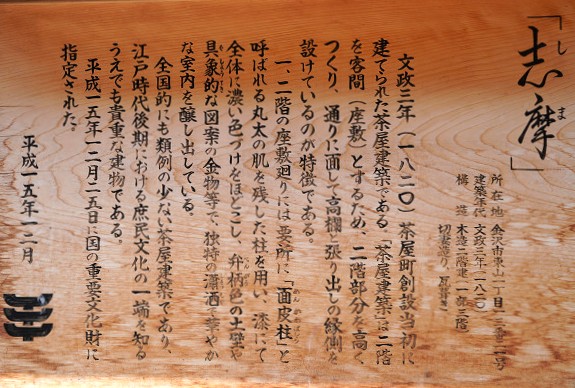 「志摩」
し ま
所在地 金沢市東山一丁目一三番二一号
建築年代 文政三年(一八二〇)
構造 木造二階建 一部三階
切妻造り、瓦葺き
文政三年(一八二〇)茶屋町創設当初に
建てられた茶屋建築である。「茶屋建築」は二階
を客間(座敷)とするため、二階部分を高く
つくり、通りに面して高欄、張り出しの縁側を
設けているのが特徴である。
一、二階の座敷廻りには要所に「面皮柱」と
呼ばれる丸太の肌を残した柱を用い、漆にて
全体に濃い色づけをほどこし、弁柄色の土壁や
具象的な図案の金物等で、独特の瀟洒で華やか
な室内を醸し出している。
全国的にも類例の少ない茶屋建築であり、
江戸時代後期における庶民文化の一端を知る
うえでも貴重な建物である。
平成一五年一二月二五日に国の重要文化財に
指定された。
平成一五年一二月